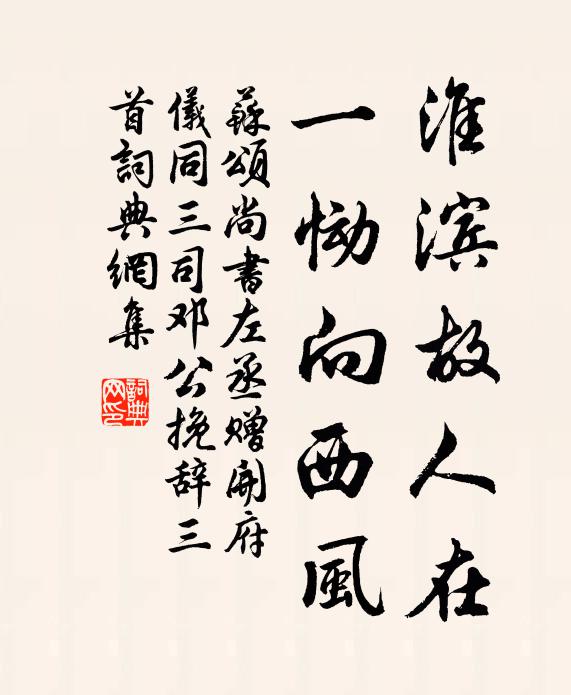 淮滨故人在
一恸向西風
蘇頌尚書左丞赠開府
儀同三司邓公挽辞三
首詞典網集
詞典
网印